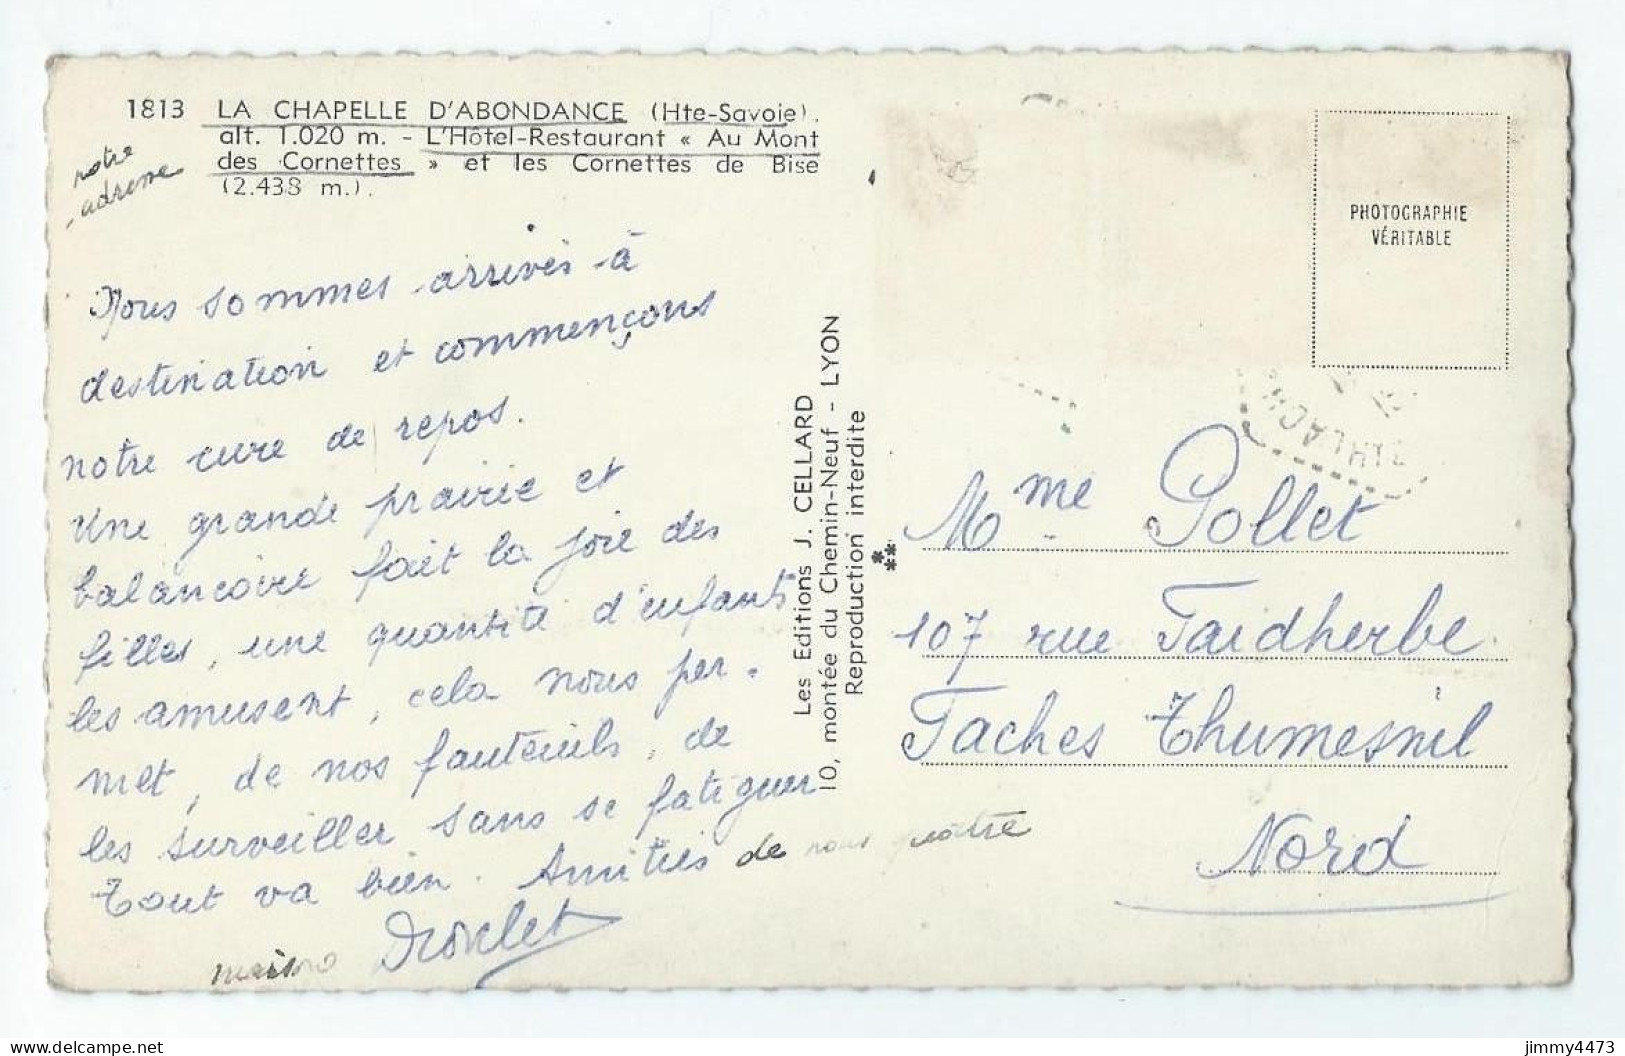 1813 LA CHAPELLE D'ABONDANCE (Hte-Savoie).
alt. 1.020 m. - L'Hôtel-Restaurant « Au Mont
des Cornettes » et les Cornettes de Bise
(2.438 m.).
notre
adresse
Nous sommes arrivés à
destination et commençons
notre cure de repos.
Une grande prairie et
balançoire fait la joie des
filles, une quantité d'enfants
les amusent, cela nous per-
met, de nos fauteuils, de
les surveiller sans se fatiguer
Tout va bien. Amitiés de nous quatre
Les Editions J. CELLARD
10, montée du Chemin-Neuf - LYON
Reproduction interdite
PHOTOGRAPHIE
VÉRITABLE
Mme Pollet
107 rue Faidherbe
Faches Thumesnil
Nord
jimmy4473
www.delcampe.net